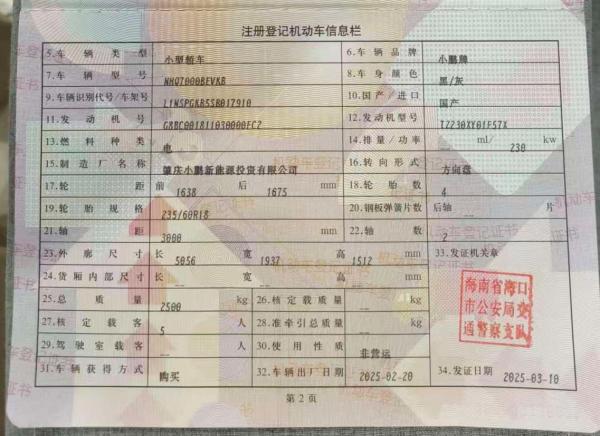 注册登记机动车信息栏
5.车辆类型 小型轿车 6.车辆品牌 小鹏牌
7.车辆型号 NHQ7000BEVKB 8.车身颜色 黑/灰
9.车辆识别代号/车架号 L1NSPGKB5SB017910 10.国产/进口 国产
11.发动机号 G8BC001811030000FC2 12.发动机型号 TZ230XY01F57X
13.燃料种类 电 14.排量/功率 ml/ 230 kw
15.制造厂名称 肇庆小鹏新能源投资有限公司 16.转向形式 方向盘
17.轮距 前 1638 后 1675 mm 18.轮胎数 4
19.轮胎规格 235/60R18 20.钢板弹簧片数 后轴 -- 片
21.轴距 3000 mm 22.轴数 2
23.外廓尺寸 长 5056 宽 1937 高 1512 mm 33.发证机关章
24.货厢内部尺寸 长 -- 宽 -- 高 -- mm
25.总质量 2500 kg 26.核定载质量 -- kg
27.核定载客 5 人 28.准牵引总质量 -- kg
29.驾驶室载客 -- 人 30.使用性质 非营运
31.车辆获得方式 购买 32.车辆出厂日期 2025-02-20 34.发证日期 2025-03-10
海南省海口
市公安局交
通警察支队
第2页